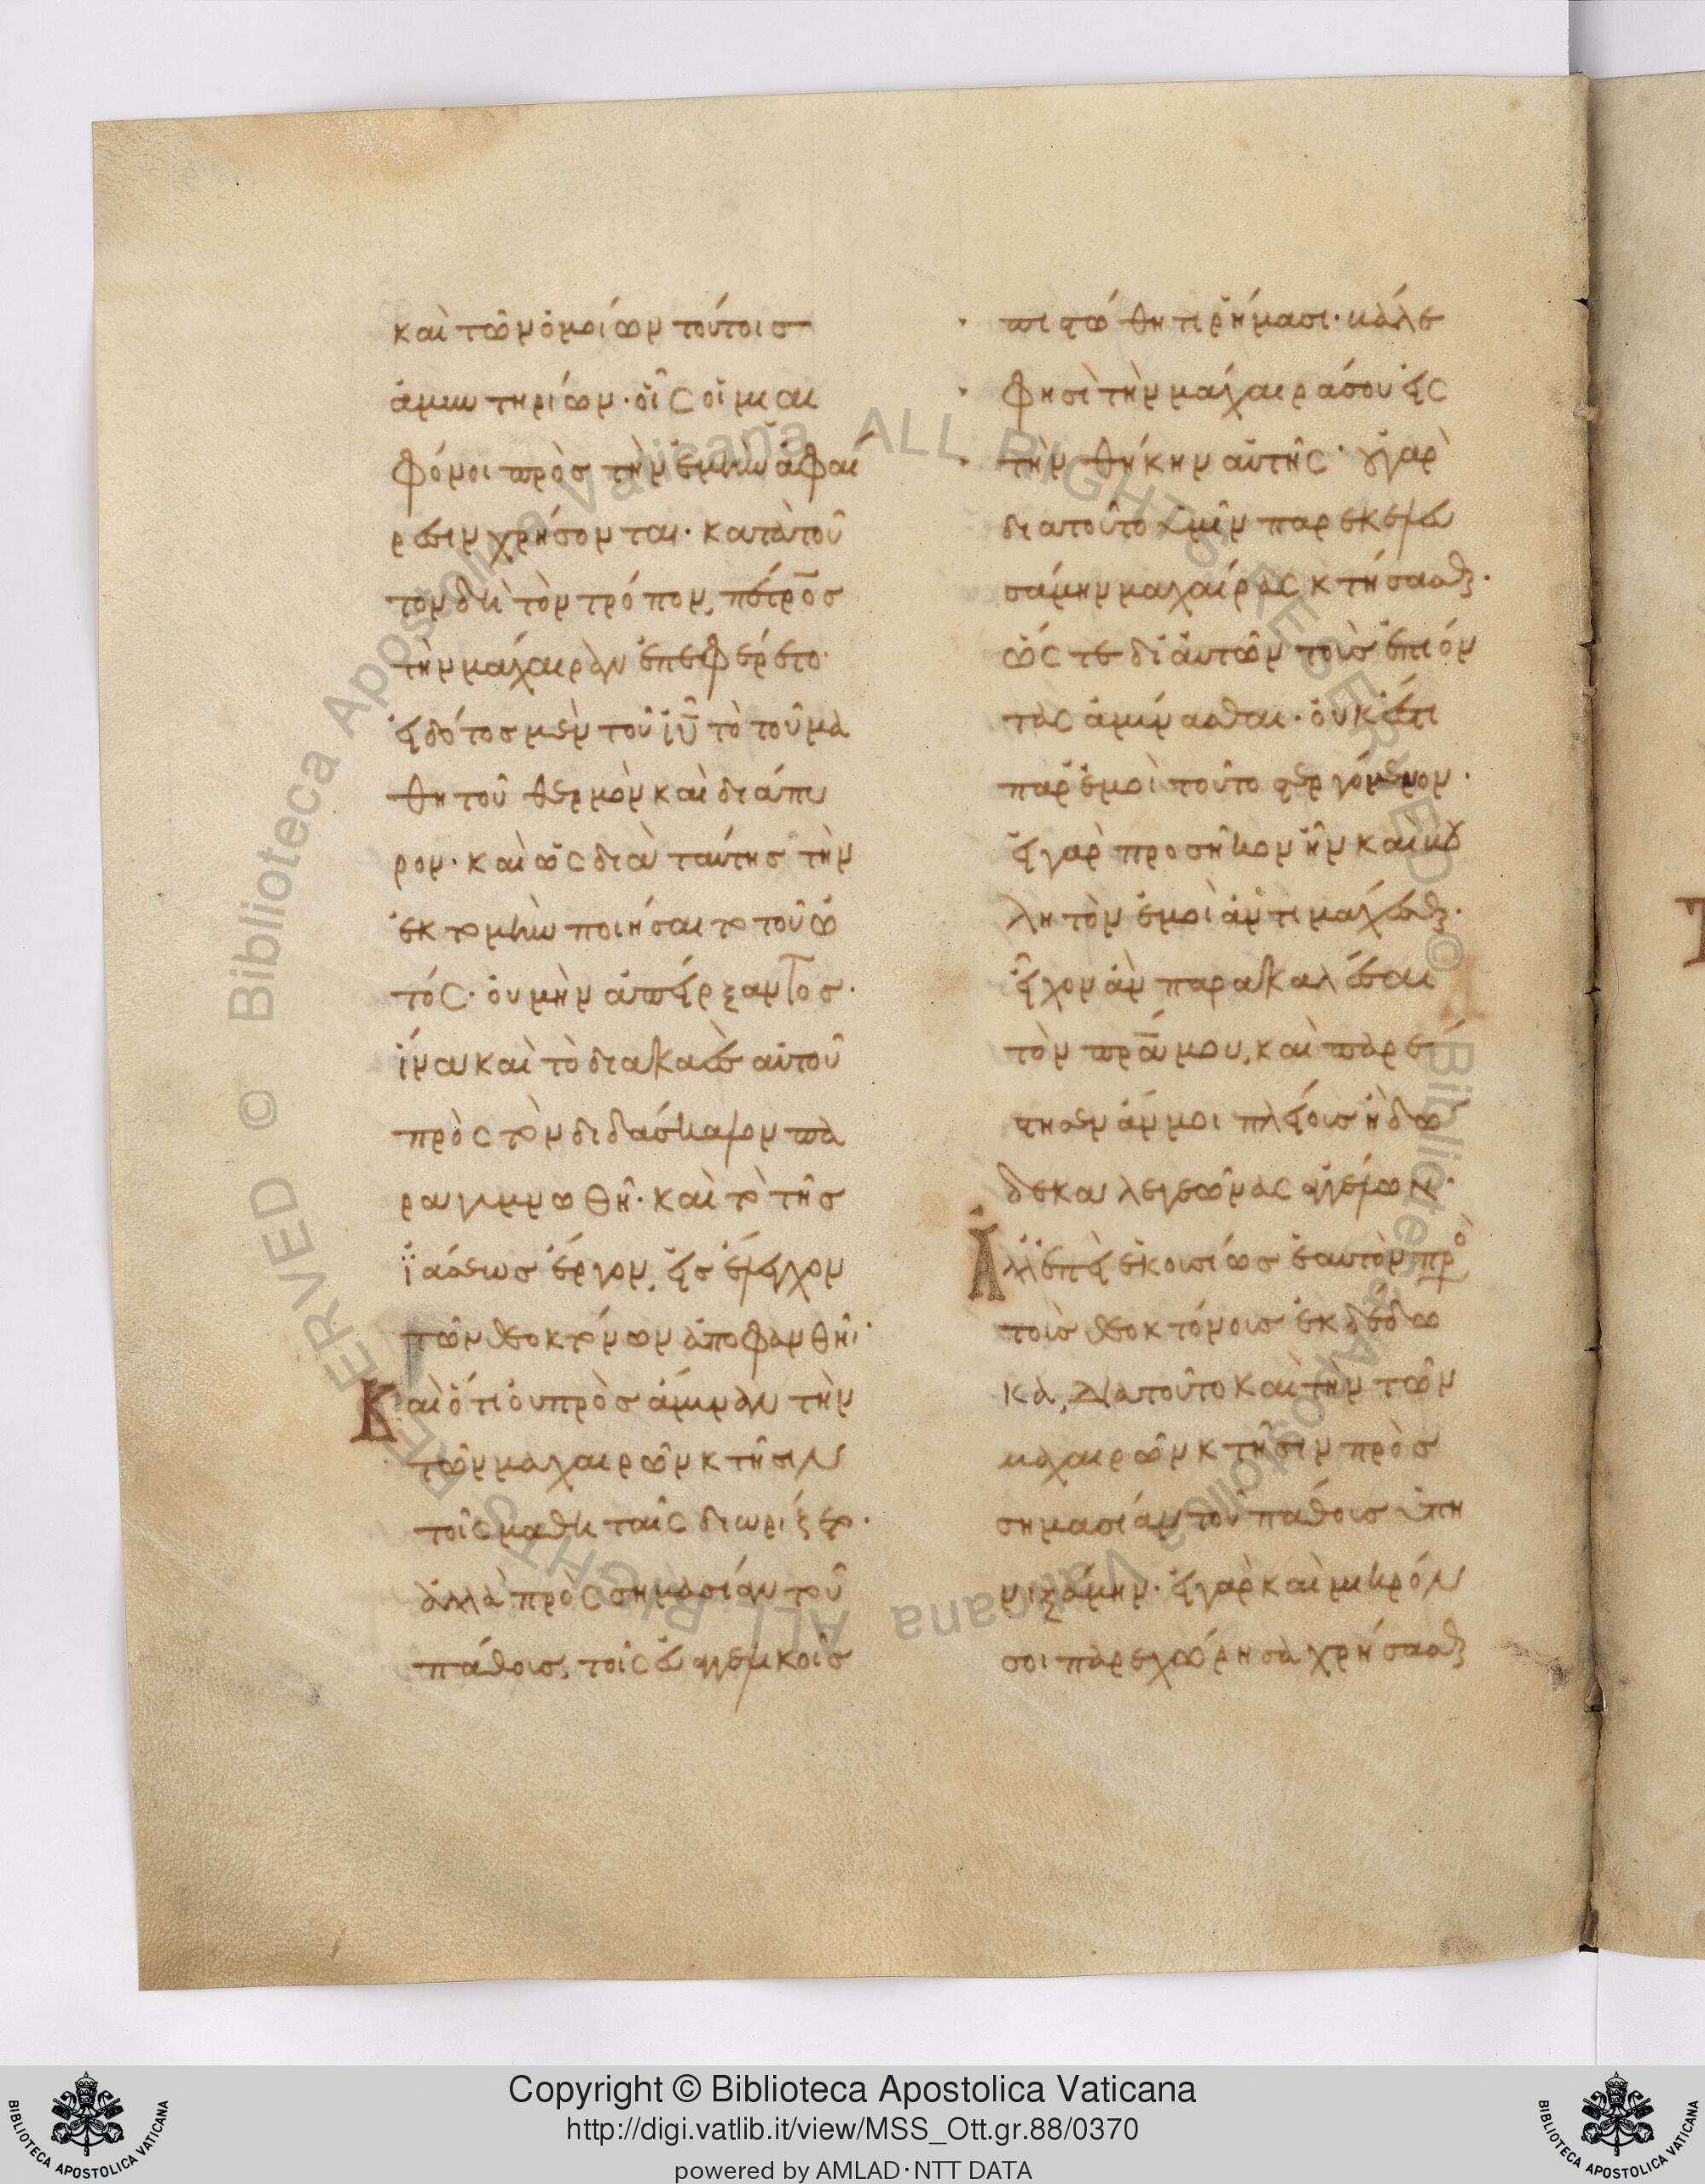 καὶ τῶν ὁμοίων τούτοις
ἀμυντηρίων· οἷς οἱ μιαι
φόνοι πρὸς τὴν ἐμὴν ἀφαί
ρεσιν χρήσονται· κατὰ τοῦ
τον δὴ τὸν τρόπον, πέτρος
τὴν μάχαιραν ἐπεφέρετο·
εἰδότος μὲν τοῦ ἰῦ τὸ τοῦ μα
θητοῦ θερμὸν καὶ διάπυ
ρον· καὶ ὡς διὰ ταύτης τὴν
ἐκτομὴν ποιήσαιτο τοῦ ὠ
τός· οὐ μὴν ἀπείρξαντος·
ἵνα καὶ τὸ διακαὲς αὐτοῦ
πρὸς τὸν διδάσκαλον πα
ραγυμνωθῆ· καὶ τὸ τῆς
ἰάσεως ἔργον, εἰς ἔλεγχον
τῶν θεοκτόνων ἀποφανθῆι·
Καὶ ὅτι οὐ πρὸς ἄμυναν τὴν
τῶν μαχαιρῶν κτῆσιν
τοῖς μαθηταῖς διωρίζετο·
ἀλλὰ πρὸς σημασίαν τοῦ
πάθους, τοῖς εὐαγγελικοῖς
πιστώθητι ῥήμασι· βάλε
φησὶ τὴν μάχαιρά σου εἰς
τὴν θήκην αὐτῆς· οὐ γὰρ
διατοῦτο ὑμῖν παρεκελευ
σάμην μαχαίρας κτήσασθαι·
ὥς τε δι' αὐτῶν τοὺς ἐπιόν
τας ἀμύνασθαι· οὐκ ἔστι
παρ' ἐμοὶ τοῦτο στεργόμενον·
εἰ γὰρ προσῆκον ἦν καὶ βου
λητὸν ἐμοὶ ἀντιμάχεσθαι·
εἶχον ἂν παρακαλέσαι
τὸν πρά μου, καὶ παρέ
στησεν ἄν μοι πλείους ἢ δώ
δεκα λεγεῶνας ἀγγέλων·
Ἀλλ' ἐπεὶ ἑκουσίως ἑαυτὸν προ
τοῖς θεοκτόνοις ἐκδέδω
κα, διατοῦτο καὶ τὴν τῶν
μαχαιρῶν κτῆσιν πρὸς
σημασίαν τοῦ πάθους ὑπη
νιξάμην· εἰ γὰρ καὶ μικρόν
σοι παρεχώρησα χρήσασθαι
Copyright © Biblioteca Apostolica Vaticana
http://digi.vatlib.it/view/MSS_Ott.gr.88/0370
powered by AMLAD·NTT DATA